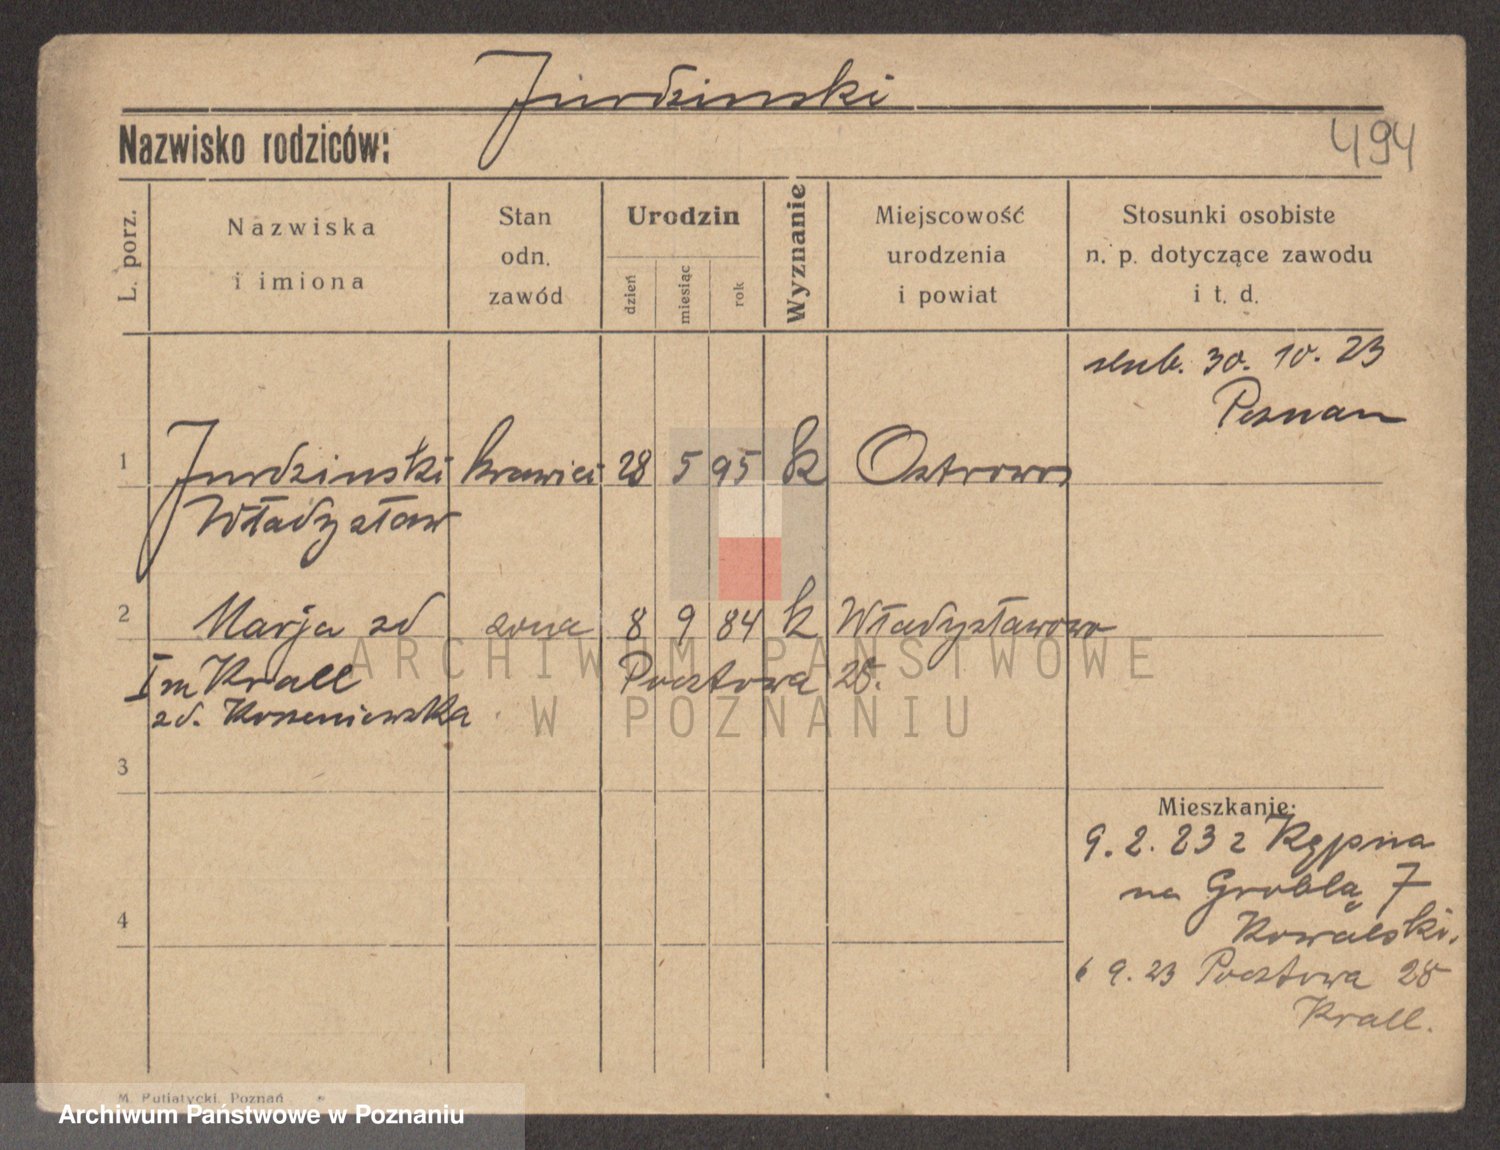 Jurdzinski
Nazwisko rodziców:
494
L. porz.
Nazwiska
i imiona
Stan
odn.
zawód
Urodzin
dzień
miesiąc
rok
Wyznanie
Miejscowość
urodzenia
i powiat
Stosunki osobiste
n. p. dotyczące zawodu
i t. d.
slub. 30. 10. 23
Poznan
1 Jurdzinski krawiec 28 5 95 k Ostrowos
Władysław
2 Marja zd żona 8 9 84 k Władysławowo
I m Krall Pocztowa 28.
zd. Korzeniewska
ARCHIWUM PAŃSTWOWE
W POZNANIU
3
Mieszkanie:
9. 2. 23 z Kępna
na Groblą 7
Kowalski.
4
6 9. 23 Pocztowa 28
Krall.
M. Putiatycki, Poznań
Archiwum Państwowe w Poznaniu